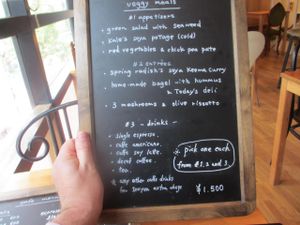 veggy meals
#1 appetizers
• green salad with seaweed
• Kale's soya potage (cold)
• red vegetables & chick pea pate
#2 entrées
• spring radish's soya keema curry
• home-made bagel with hummus
& Today's deli
• 3 mushrooms & olive risotto
#3 - drinks -
• single espresso.
• caffe americano.
• caffe soy latte.
• decaf coffee.
• tea.
※ any other caffe drinks
for
※ pick one each
from #1, 2 and 3.
¥1.500